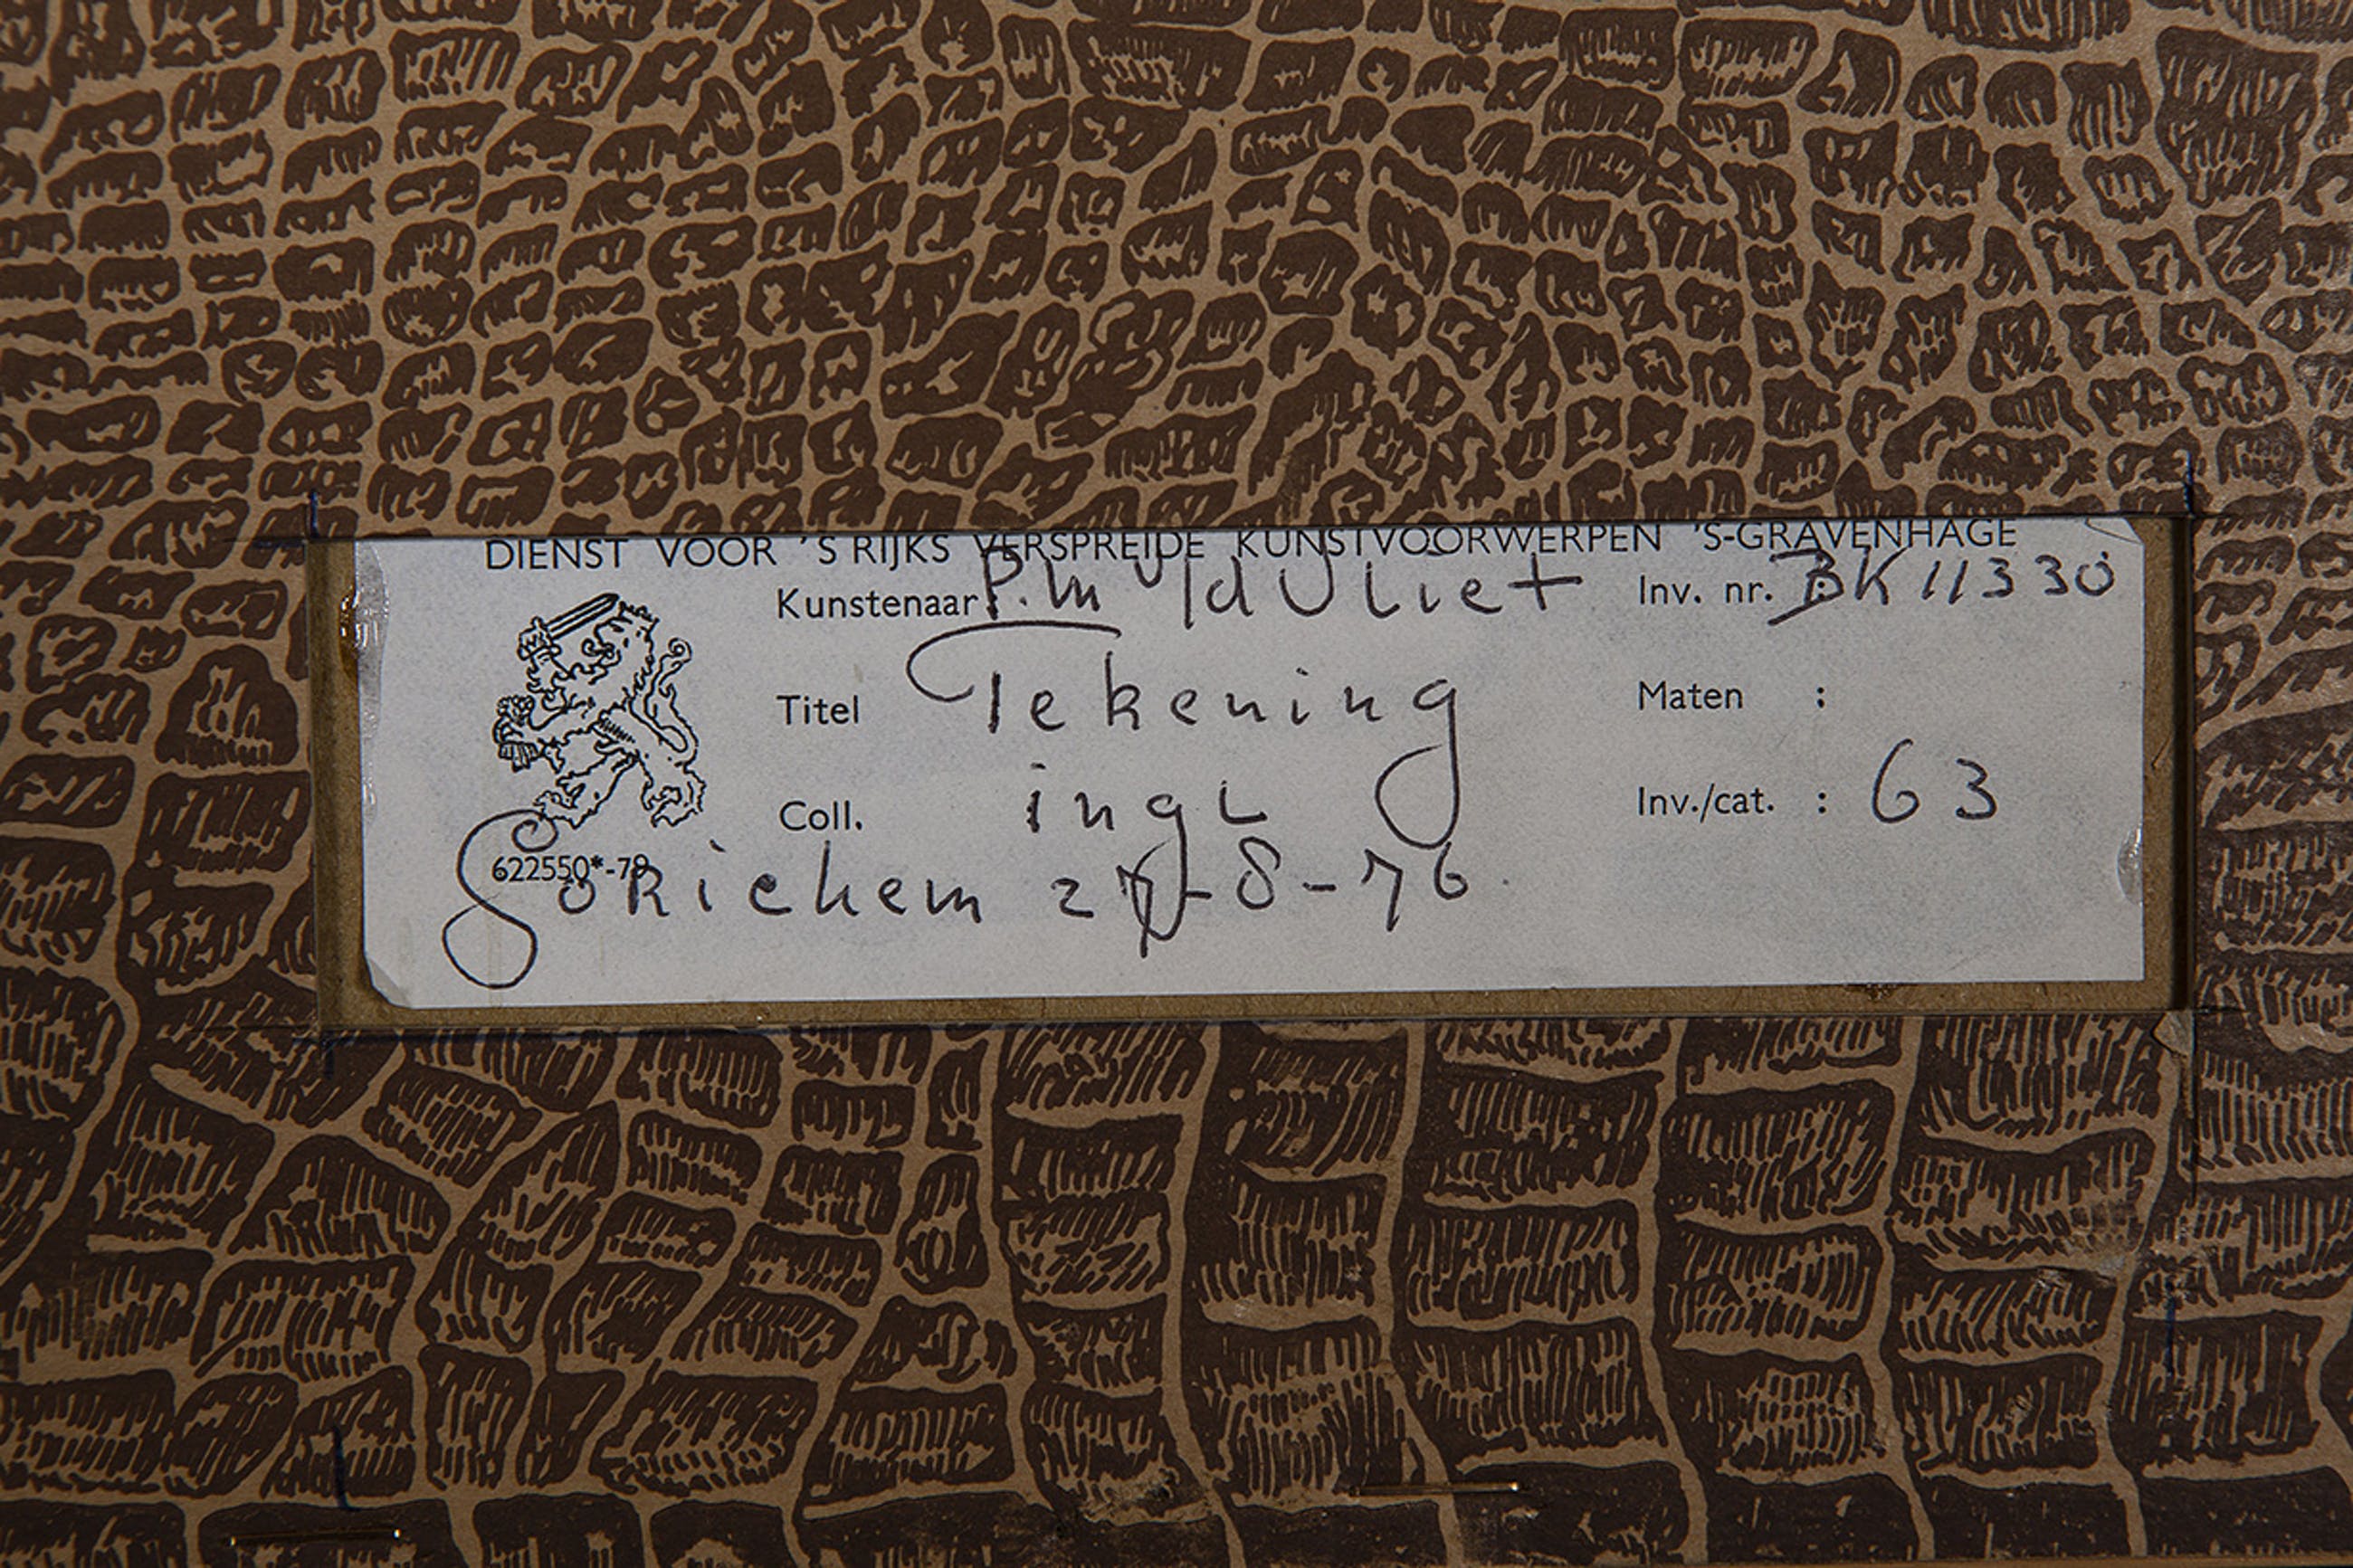 DIENST VOOR 'S RIJKS VERSPREIDE KUNSTVOORWERPEN 'S-GRAVENHAGE
Kunstenaar P.M v/d Vliet Inv. nr. BK 11330
Titel Tekening Maten :
Coll. ingL Inv./cat. : 63
622550*-78
Gorichem 27-8-76.